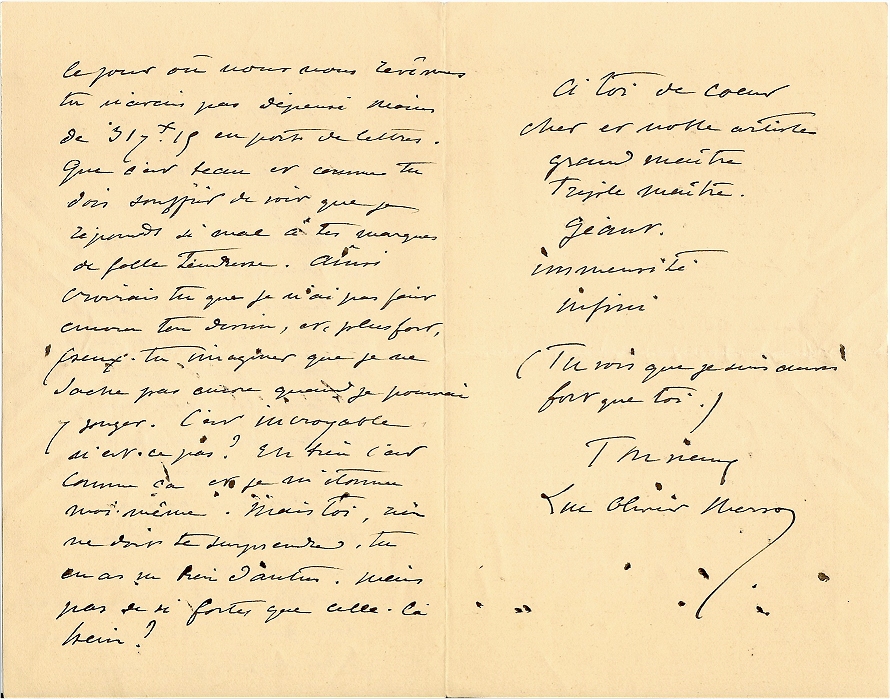 le jour où nous nous revîmes
tu n'avais pas dépensé moins
de 317f.15 en ports de lettres.
Que c'est beau et comme tu
dois souffrir de voir que je
réponds si mal à tes marques
de folle tendresse. Ainsi
croirais tu que je n'ai pas fait
encore ton dessin, et, plus fort,
peux-tu imaginer que je ne
sache pas encore quand je pourrai
y songer. C'est incroyable
n'est-ce pas ? Eh bien c'est
comme ça et je m'étonne
moi-même. Mais toi, rien
ne doit te surprendre. tu
en as vu bien d'autres. mais
pas de si fortes que celle-là
hein ?
A toi de coeur
cher et noble artiste
grand maître
Triple maître.
Géant.
immensité
infini
(Tu vois que je suis aussi
fort que toi.)
Ton vieux
Luc Olivier Merson